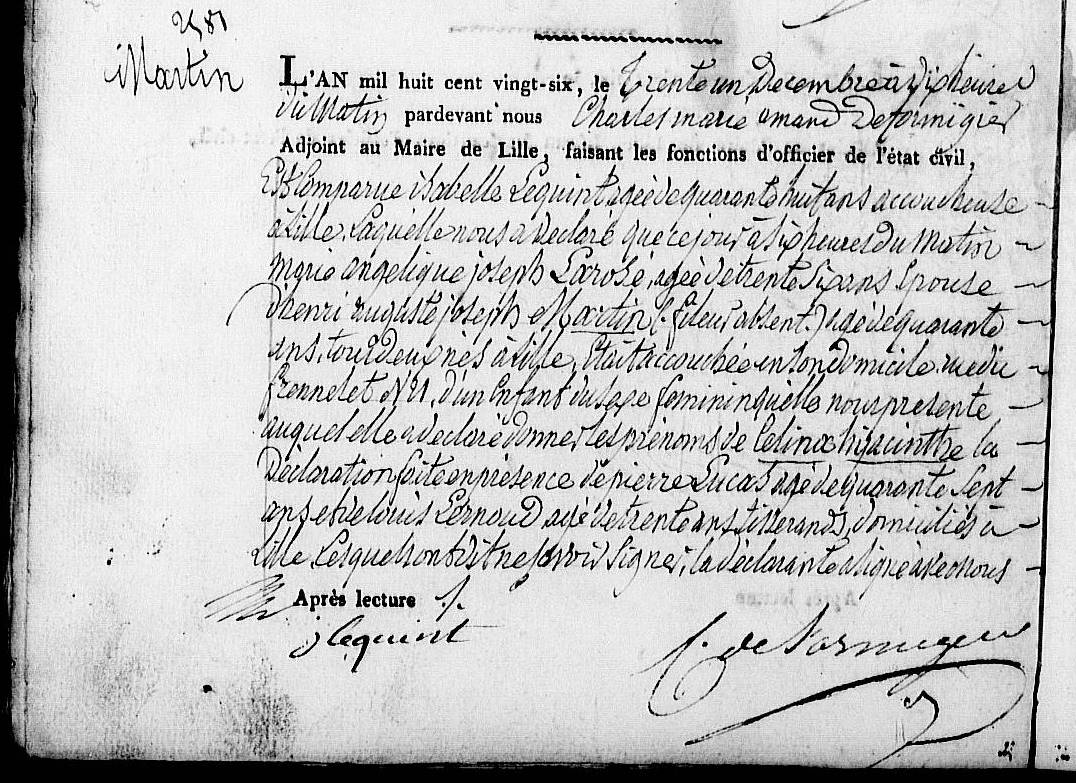 2581
Martin
L'AN mil huit cent vingt-six, le trente un Decembre à dix heures
du Matin pardevant nous Charles marie amand Deformigier
Adjoint au Maire de Lille, faisant les fonctions d'officier de l'état civil,
Est Comparue isabelle Lequint agée de quarante huit ans accoucheuse
à Lille, Laquelle nous a declaré que ce jour à six heures du matin
marie angelique joseph Larosé, agée de trente six ans Epouse
D'henri auguste joseph Martin (fileur absent.) agé de quarante
ans, tous deux nés à Lille, Etait accouchée en son domicile rue du
frennelet N° 1, D'un Enfant du sexe feminin quelle nous presente
auquel elle a declaré donner les prénoms de Celina hyacinthe la
Déclaration faite en présence de pierre Lucas agé de quarante Sept
ans et de Louis Lernoud agé de trente ans tisserands, domiciliés à
Lille, Lesquels ont dit ne savoir signer, la déclarante a signé avec nous
Après lecture ./.
j lequint
C. de Formigier